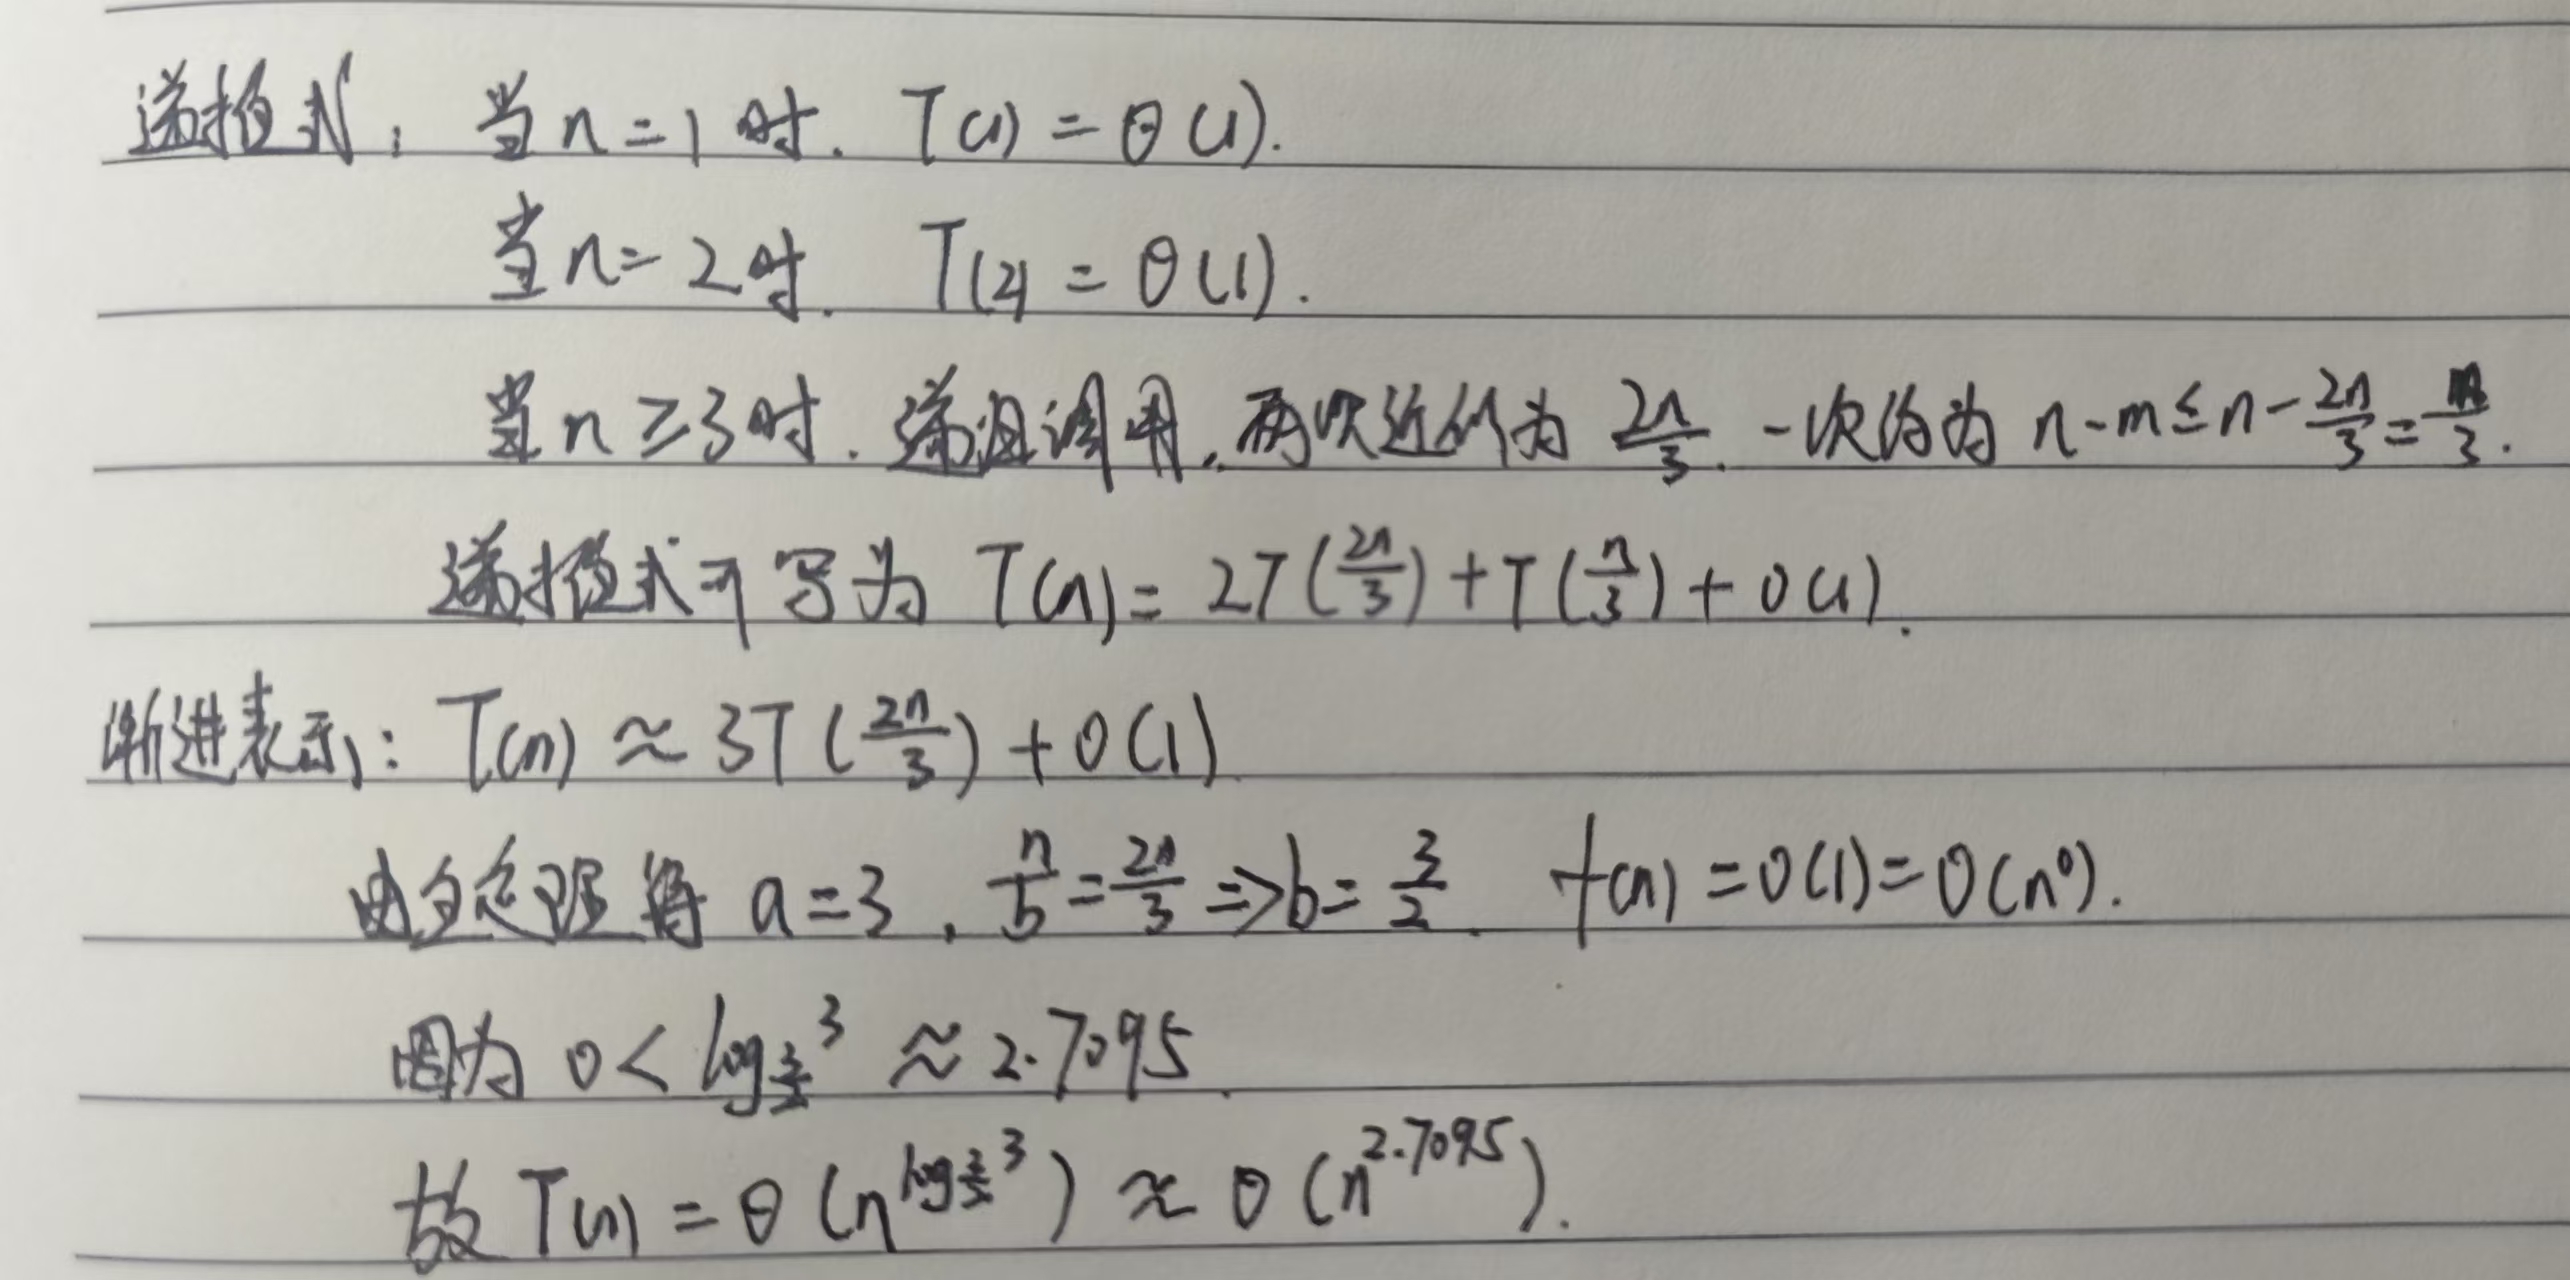 递推式: 当 n=1 时. T(1) = θ(1).
当 n=2时. T(2) = θ(1).
当 n≥3时. 递归调用, 两次近似为 2n/3. 一次约为 n-m≤n-2n/3=n/3.
递推式可写为 T(n)= 2T(2n/3)+T(n/3)+O(1).
渐进表示: T(n) ≈ 3T(2n/3)+O(1)
由主定理得 a=3, n/b=2n/3 ⇒ b=3/2. f(n)=O(1)=O(n⁰).
因为 0 < log_{3/2} 3 ≈ 2.7095.
故 T(n) = θ(n^{log_{3/2} 3}) ≈ θ(n^{2.7095}).